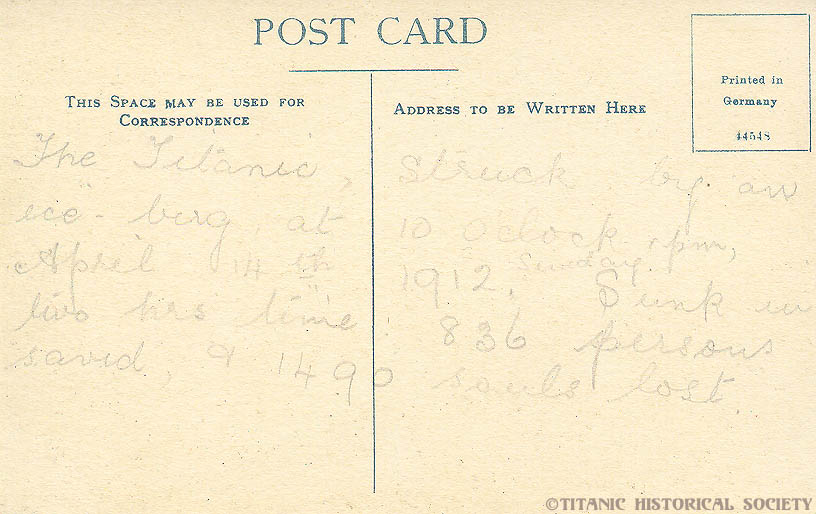 POST CARD
THIS SPACE MAY BE USED FOR
CORRESPONDENCE
ADDRESS TO BE WRITTEN HERE
Printed in
Germany
44548
The Titanic, Struck by an
ice-berg, at 10 O'clock, pm,
Sunday
April 14th 1912. Sunk in
two hrs time 836 persons
savid, & 1490 souls lost.
©TITANIC HISTORICAL SOCIETY